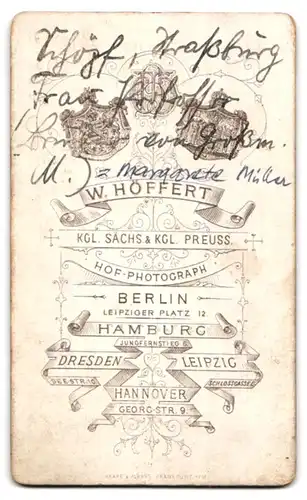 Schöpf, Straßburg
Frau
von Großm.
M.) = Margarete Müller
W. HÖFFERT
KGL. SÄCHS & KGL. PREUSS.
HOF-PHOTOGRAPH
BERLIN
LEIPZIGER PLATZ 12
HAMBURG
JUNGFERNSTIEG 6
DRESDEN LEIPZIG
SEESTR. 10 SCHLOSSGASSE
HANNOVER
GEORG-STR. 9